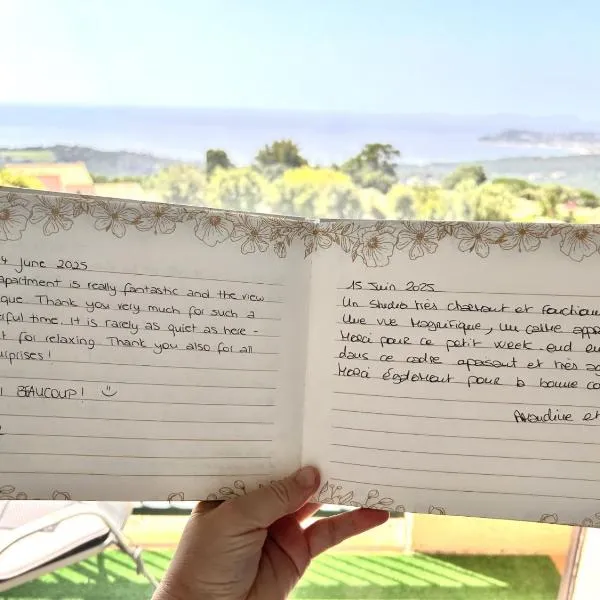 4 June 2025
apartment is really fantastic and the view
que. Thank you very much for such a
rful time. It is rarely as quiet as here -
t for relaxing. Thank you also for all
urprises!
! BEAUCOUP! ☺
15 Juin 2025
Un studio très charmant et fonction
Une vue magnifique, un cadre appa
Merci pour ce petit week-end en
dans ce cadre apaisant et très ag
Merci également pour la bonne co
et